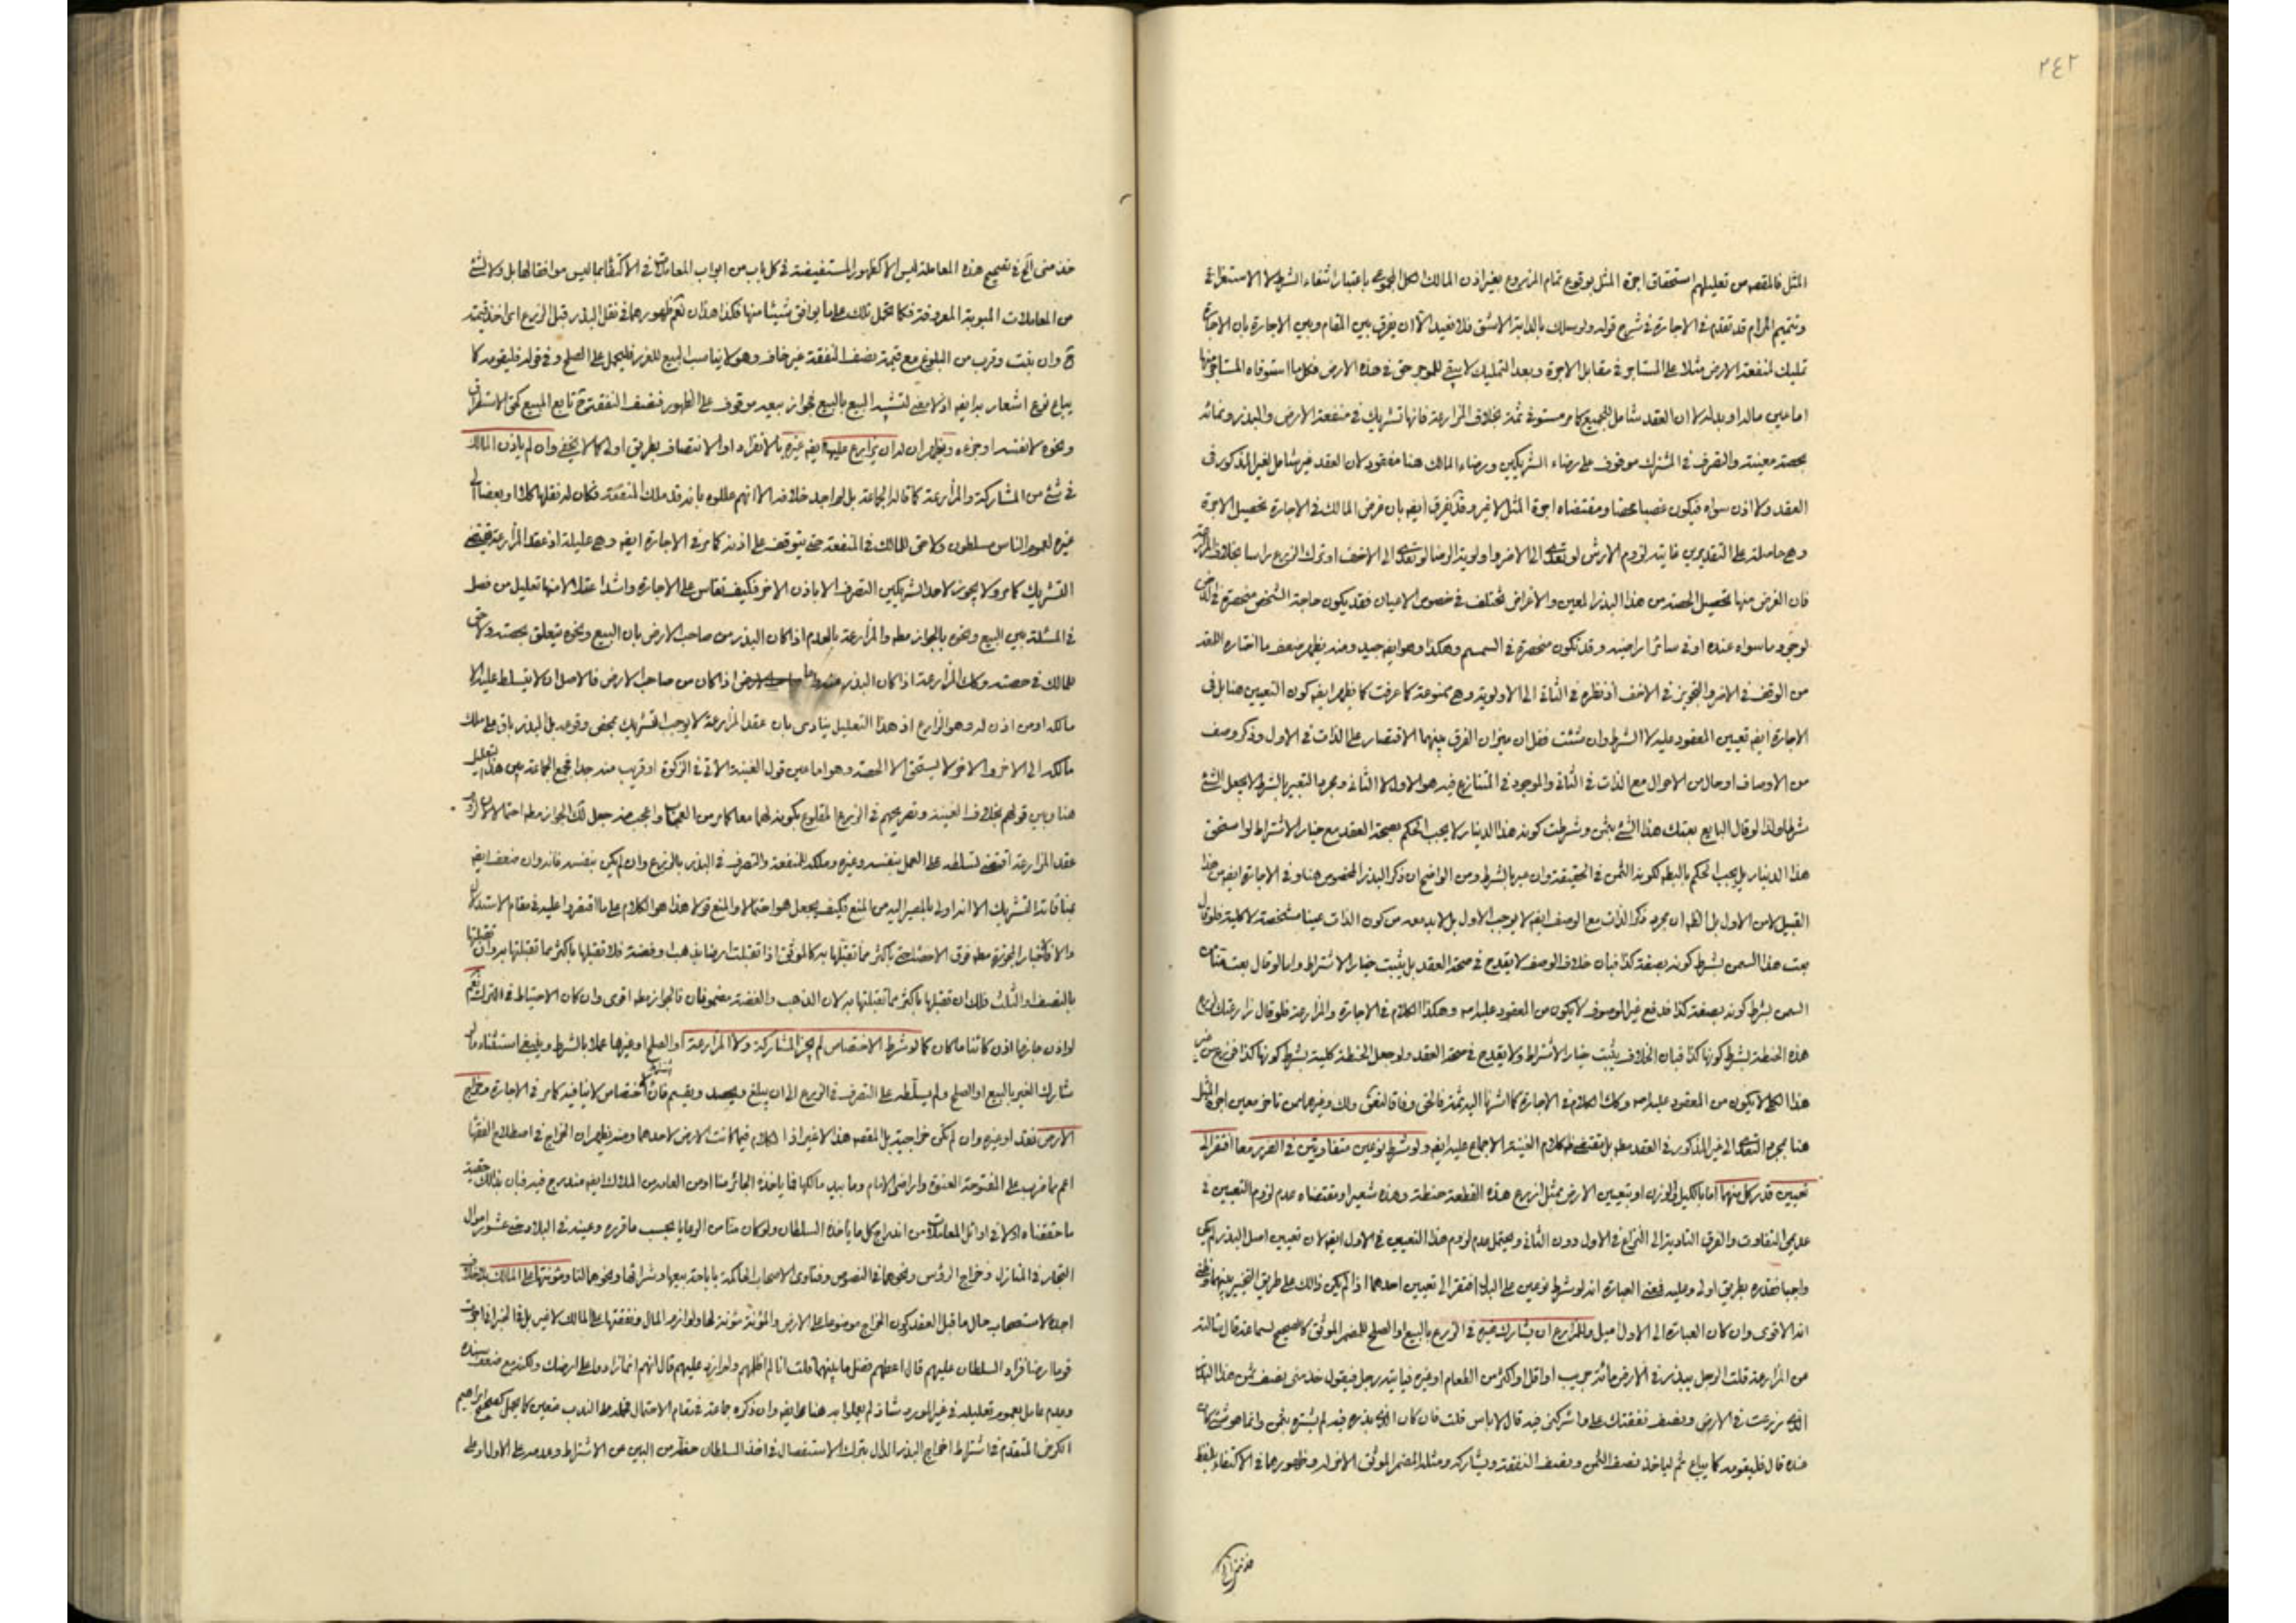 ٢٤٢
المثل فالمقصود من تعليلهم استحقاق اجرة المثل بوقوع تمام المزروع بغير اذن المالك اعمل المجموع باعتبار انتفاء الشرط لا الاستغراق
وتتميم المرام قد تقدم في الاجارة في شرح قوله ولو سلك بالدابة الاشق فلا نعيد الا ان يفرق بين المقام وبين الاجارة بان الاجارة
تمليك لمنفعة الارض مثلا على المستاجر في مقابل الاجرة وبعد التمليك لا يبقى للموجر حق في هذه الارض فكل ما استوفاه المستاجر منها
اما عين ماله او بدله لان العقد شامل للجميع كما مر مستوفى ثمة بخلاف المزارعة فانها تشريك في منفعة الارض والبذر ونمائه
بحصة معينة والتصرف في المشترك موقوف على رضاء الشريكين ورضاء المالك هنا مفقود لان العقد غير شامل لغير المذكور في
العقد ولا اذن سواه فيكون غصبا محضا ومقتضاه اجرة المثل لا غير وقد يفرق ايضا بان غرض المالك في الاجارة تحصيل الاجرة
وهي حاصلة على التقديرين غايته لزوم الارش لو تعدى الى الاضر واولوية الرضا لو تعدى الى الاخف او ترك الزرع راسا بخلاف المزارعة
فان الغرض منها تحصيل الحصة من هذا البذر المعين والاغراض تختلف في خصوص الاعيان فقد يكون حاجة الشخص منحصرة في
لوجود ما سواه عنده او في سائر اراضيه وقد تكون منحصرة في السمسم وهكذا وهو ايضا جيد ومنه يظهر ضعف ما اختاره
من الوقف في الاضر والتجويز في الاخف اذ نظره في الثاني الى الاولوية وهي ممنوعة كما عرفت كما ظهر ايضا كون التعيين هنا بل في
الاجارة ايضا تعيين المعقود عليه لا الشرط وان شئت فقل ان ميزان الفرق بينهما الاقتصار على الذات في الاول وذكر وصف
من الاوصاف او حال من الاحوال مع الذات في الثاني والموجود في المتنازع فيه هو الاول لا الثاني ومجرد التعبير بالشرط لا يجعل الشئ
شرطا ولذا لو قال البايع بعتك هذا الشئ بثمن وشرطت كونه هذا الدينار لا يجب الحكم بصحة العقد مع خيار الاشتراط لو استحق
هذا الدينار بل يجب الحكم بالبطلان لكونه الثمن في الحقيقة وان عبر بالشرط ومن الواضح ان ذكر البذر المخصوص هنا وفي الاجارة ايضا من هذا
القبيل لا من الاول بل الظاهر ان مجرد ذكر الذات مع الوصف ايضا لا يوجب الاول بل لا بد معه من كون الذات عينا مشخصة لا كلية فلو قال
بعت هذا السمن بشرط كونه بصفة كذا فبان خلاف الوصف لا يقدح في صحة العقد بل يثبت خيار الاشتراط واما لو قال بعت منا من
السمن بشرط كونه بصفة كذا فدفع غير الموصوف لا يكون من المعقود عليه اصلا وهكذا الكلام في الاجارة والمزارعة فلو قال زارعتك لزرع
هذه الحنطة بشرط كونها كذا فبان الخلاف يثبت خيار الاشتراط ولا يقدح في صحة العقد ولو جعل الحنطة كلية بشرط كونها كذا فزرع من غير
هذا الكلي لا يكون من المعقود عليه اصلا وكذا الكلام في الاجارة كما اشرنا اليه ثمة فالحق وفاقا وغيرهما من تاخر معين اجرة المثل
هنا بمجرد التعدي الى غير المذكور في العقد مطلقا بل مقتضى ظاهر كلام الغنية الاجماع عليه ايضا ولو شرط نوعين متفاوتين في الضرر معا افتقر الى
تعيين قدر كل منهما اما بالكيل او الوزن او بتعيين الارض بمثل ازرع هذه القطعة حنطة وهذه شعيرا ومقتضاه عدم لزوم التعيين في
عديمي التفاوت والفرق التادية الى النزاع في الاول دون الثاني ويحتمل عدم لزوم هذا التعيين في الاول ايضا لان تعيين اصل البذر لم يكن
واجبا فقدره بطريق اولى وعليه فمعنى العبارة انه لو شرط نوعين على البدل افتقر الى تعيين احدهما اذا لم يكن ذلك على طريق التخيير بينهما
انه الاقوى وان كان العبارة الى الاول اميل وللمزارع ان يشارك غيره في الزرع بالبيع او الصلح للمضمر الموثق كالصحيح لسماعة قال سالته
عن المزارعة قلت الرجل يبذر في الارض مائة جريب او اقل او اكثر من الطعام او غيره فياتيه رجل فيقول خذ مني نصف ثمن هذا البذر
الذي زرعت في الارض ونصف نفقتك علي واشركني فيه قال لا باس قلت فان كان الذي بذره فيه لم يشتره بثمن وانما هو شئ كان
عنده قال فليقومه كما يباع ثم لياخذ نصف الثمن ونصف النفقة ويشاركه ومثله المضمر الموثق الاخر له وظهورهما في الاكتفاء بلفظ
خذ مني الخ في تصحيح هذه المعاملة ليس الا كظهور المستفيضة في كل باب من ابواب المعاملات في الاكتفاء بما ليس موافقا لها بل ولا لشئ
من المعاملات المبوبة المعروفة فكما تحمل تلك على ما يوافق شيئا منها فكذا هذان نعم ظهورهما في نقل البذر قبل الزرع اي اخذ قيمته
ح وان نبت وقرب من البلوغ مع قيمة نصف النفقة غير خاف وهو لا يناسب البيع للغرر فليحمل على الصلح وفي قوله فليقومه كما
يباع نوع اشعار به ايضا اذ لا معنى لتشبيه البيع بالبيع فجواز بيعه موقوف على الظهور فنصف النفقة ح تابع المبيع كحق الاستطراق
ونحوه لا نفسه او جزءه ويظهر ان له ان يزارع عليها ايضا غيره بالانفراد او الانتصاف بطريق اولى كما لا يخفى وان لم ياذن المالك
في شئ من المشاركة والمزارعة كما قاله الجماعة بل لم اجد خلافه الا انهم عللوه بانه قد ملك المنفعة فكان له نقلها كلا او بعضا الى
غيره لعموم الناس مسلطون ولا حق للمالك في المنفعة حتى يتوقف على اذنه كما مر في الاجارة ايضا وهي عليلة اذ عقد المزارعة يقتضي
التشريك كما مر ولا يجوز لاحد الشريكين التصرف الا باذن الاخر فكيف تقاس على الاجارة واشد اعتلالا منها تعليل من فصل
في المسئلة بين البيع ونحوه بالجواز مطلقا والمزارعة بالعدم اذا كان البذر من صاحب الارض بان البيع ونحوه يتعلق بحصته ولا حق
للمالك في حصته وكذا المزارعة اذا كان البذر منه واما اذا كان من صاحب الارض فالاصل ان لا يتسلط عليه الا
مالكه او من اذن له وهو الزارع اذ هذا التعليل ينادى بان عقد المزارعة لا يوجب التشريك بمحض وقوعه بل البذر باق على ملك
مالكه الى الاخر والاخر لا يستحق الا الحصة وهو اما عين قول الغنية الاتي في الزكوة او قريب منه جدا فجمع الجماعة بين هذا التعليل
هنا وبين قولهم بخلاف الغنية وتصريحهم في الزرع المقلوع بكونه لهما معا كما مر من العجب واعجب منه جعل لك الجواز مطلقا احتمالا لان لازم
عقد المزارعة اقتضى تسلطه على العمل بنفسه وغيره وملكه للمنفعة والتصرف في البذر بالزرع وان لم يكن بنفسه فانه وان ضعف ايضا
بمنافاته التشريك الا انه اولى بالمصير اليه من المنع فكيف يجعل هو احتمالا والمنع قولا هذا هو الكلام على ما اقتصروا عليه في مقام الاستدلال
والا فالاخبار المجوزة مطلقا فوق الاحصاء حتى باكثر مما تقبلها به كالموثق اذا تقبلت ارضا بذهب او فضة فلا تقبلها باكثر مما تقبلتها به وان تقبلتها
بالنصف او الثلث فلك ان تقبلها باكثر مما تقبلتها به لان الذهب والفضة مضمونان فالجواز مطلقا اقوى وان كان الاحتياط في الترك نعم
لو اذن جاز مهما اذن كائنا ما كان كما لو شرط الاختصاص لم يجز المشاركة ولا المزارعة او الصلح او غيرها عملا بالشرط وينبغي استثناء ما لو
شارك الغير بالبيع او الصلح ولم يسلطه على التصرف في الزرع الى ان يبلغ ويحصد ويقسم فان اختصاص لا ينافيه كما مر في الاجارة وخراج
الارض فقد او غيره وان لم تكن خراجية بل المقصود هذا لا غير اذا الكلام فيما كانت الارض لاحدهما ومنه يظهر ان الخراج في اصطلاح الفقهاء
اعم مما ضرب على المفتوحة العنوة واراضي الانام وما بيد مالكها فما ياخذه الجائر منا او من العامة من الملاك ايضا مندرج فيه فبان بذلك حقيقة
ما حققناه اولا في اوائل المعاملات من اندراج كل ما ياخذه السلطان ولو كان منا من الرعايا بحسب ما قرره وعينه في البلاد حتى عشور اموال
التجار في المنازل وخراج الرؤس ونحوهما في النصوص وفتاوى الاصحاب الحاكمة باباحة بيعها وشرائها ونحوهما لنا ومؤنتها على المالك بلا خلاف
اجده لاستصحاب حال ما قبل العقد لكون الخراج موضوعا على الارض والمؤنة مؤنة لها ولوازم المال ونفقتها على المالك لا غير بل في الخبر اذا اجرت
قوما ارضا فزاد السلطان عليهم قال اعطهم فضل ما بينهما قلت انا لم اظلمهم ولم ازد عليهم قال انهم انما زادوا على ارضك ولكنه مع ضعف سنده
وعدم عامل بعموم تعليله في غير المورد شاذ لم يعملوا به هنا ايضا وان ذكره جماعة في مقام الاحتمال فحمله على الندب متعين كما يحمل صحيح ابراهيم
الكرخي المتقدم في اشتراط اخراج البذر الدال بترك الاستفصال في اخذ السلطان حظه من البين عن الاشتراط وعدمه على الاول او على
خذ مني الخ